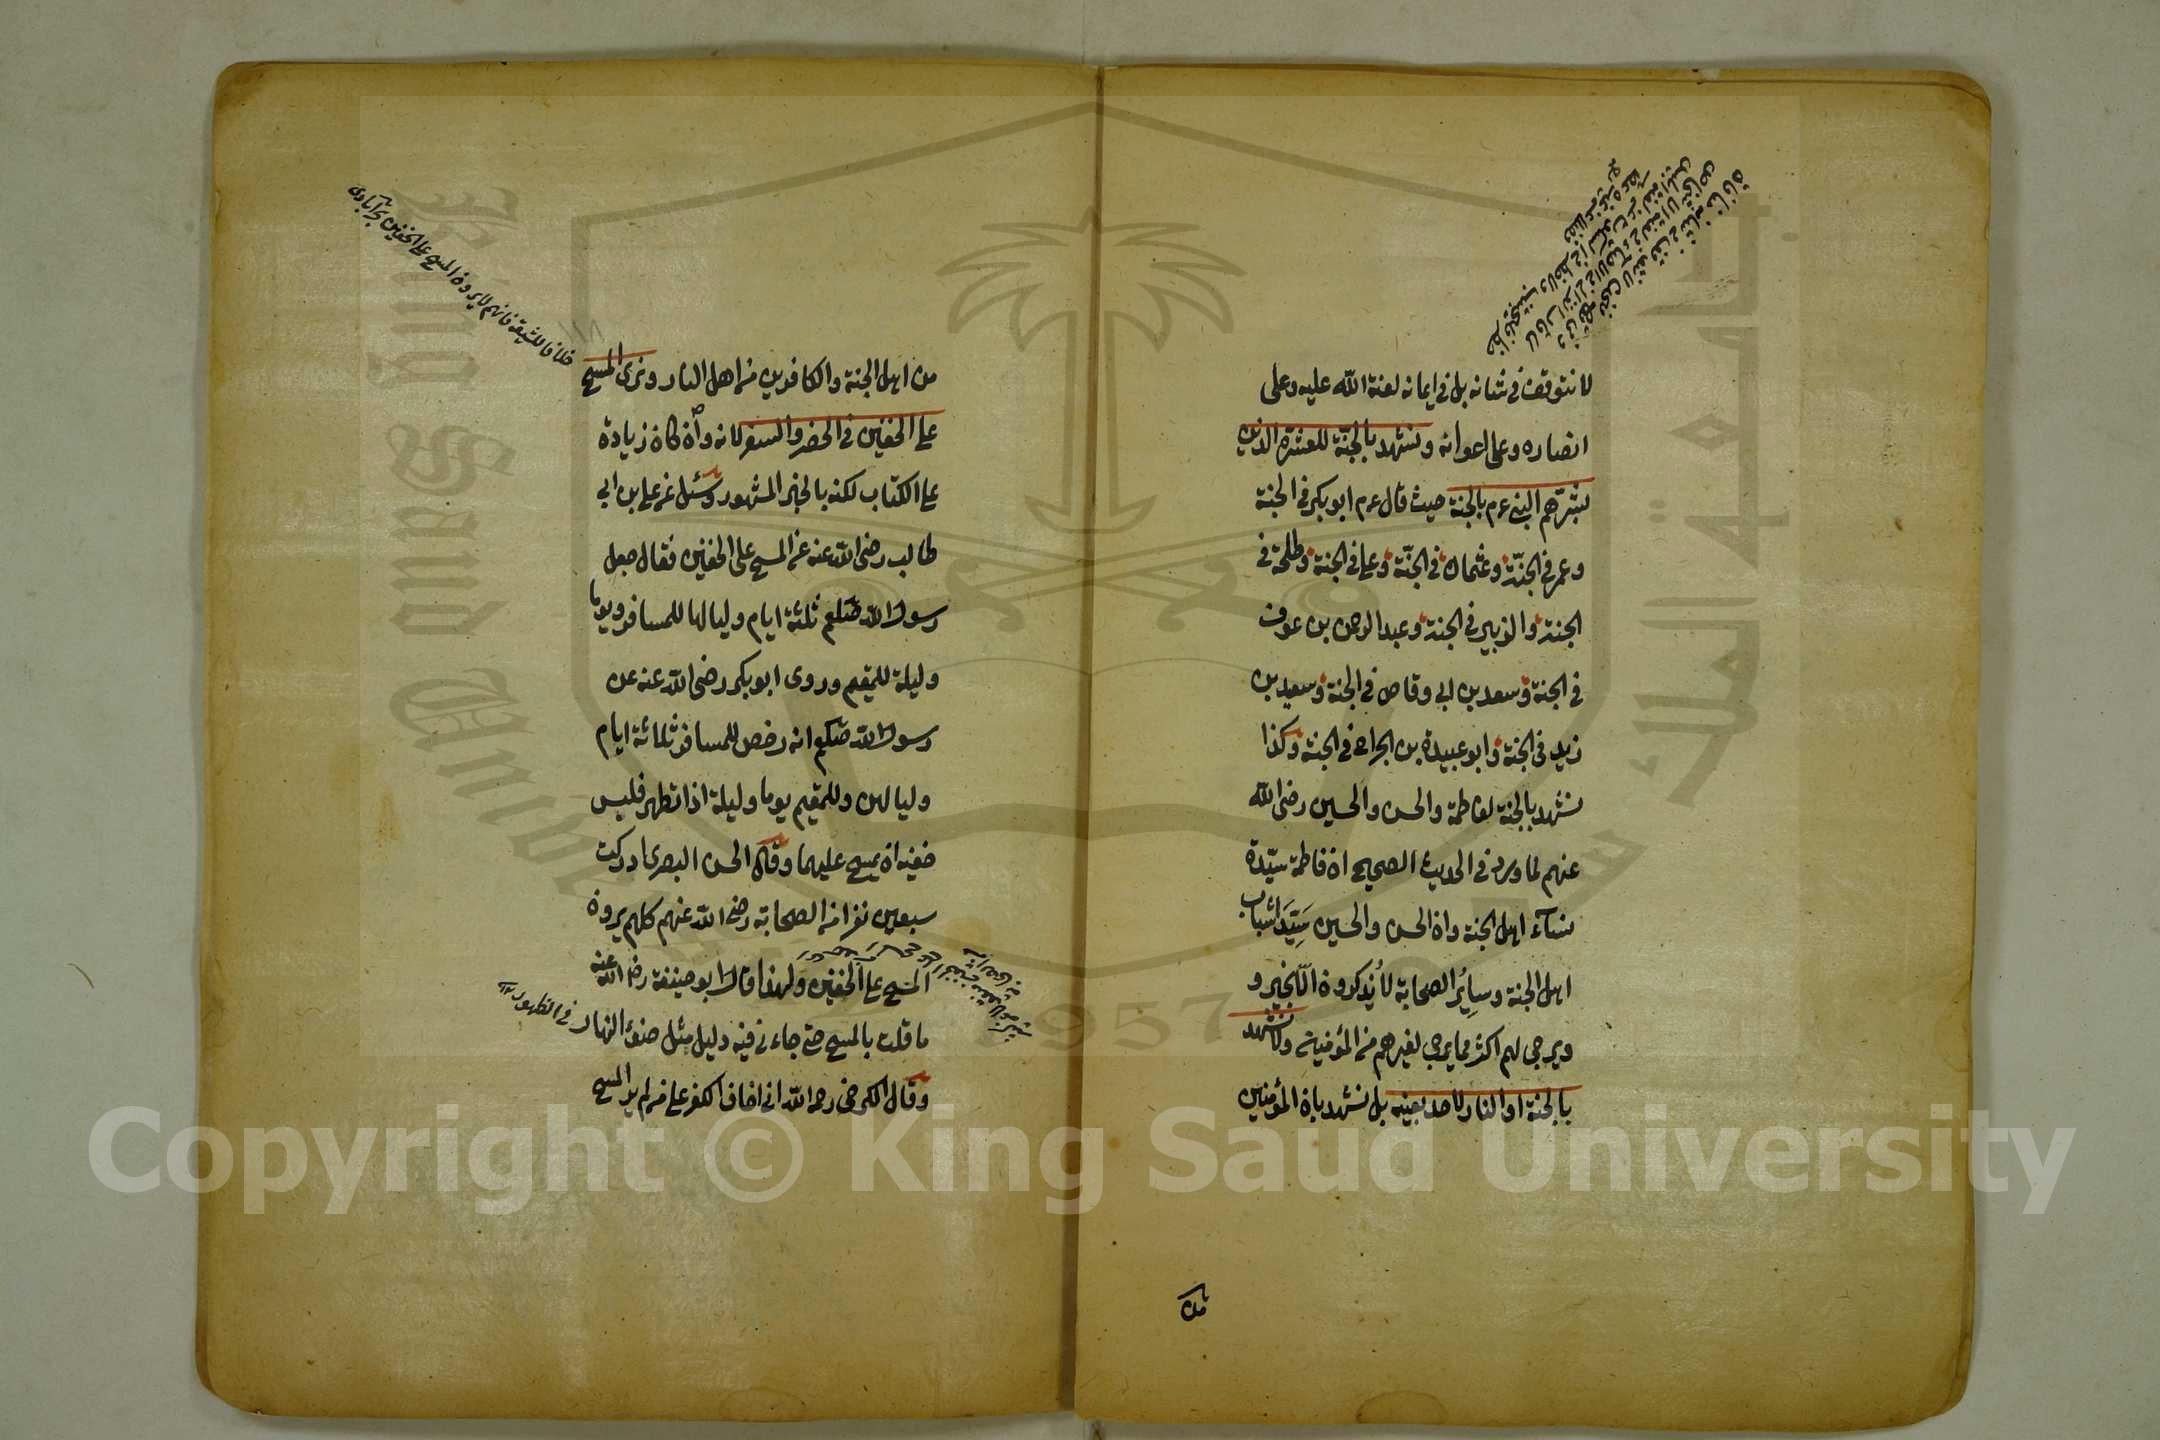 لا نتوقف في شانه بل في ايمانه لعنة الله عليه وعلى
انصاره وعلى اعوانه ونشهد بالجنة للعشرة الذين
بشرهم النبي عم بالجنة حيث قال عم ابو بكر في الجنة
وعمر في الجنّة وعثمان في الجنّة وعلي في الجنة وطلحة في
الجنة والزبير في الجنة وعبد الرحمن بن عوف
في الجنة وسعد بن ابي وقاص في الجنة وسعيد بن
زيد في الجنة وابو عبيدة بن الجراح في الجنة وكذا
نشهد بالجنة لفاطمة والحسن والحسين رضى الله
عنهم لما ورد في الحديث الصحيح ان فاطمة سيّدة
نسآء اهل الجنة وان الحسن والحسين سَيِّدَا شباب
اهل الجنة وسايُر الصحابة لا يُذكرون الّا بخير و
ويرجى لهم اكثر مما يرجى لغيرهم من المؤمنين ولا نشهد
بالجنة او النار لاحد بعينه بل نشهد بان المؤمنين
من
خلافا للشيعة فانهم لا يرون المسح على الخفين
من اهل الجنة والكافرين من اهل النار ونرى المسح
على الخفين في الحضر والسفر لانه وان كان زيادة
على الكتاب لكنه بالخبر المشهور وسئل عن علي بن ابي
طالب رضى الله عنه عن المسح على الخفين فقال جعل
رسول الله صلعم ثلثة ايام ولياليها للمسافر ويوما
وليلة للمقيم وروى ابو بكر رضى الله عنه عن
رسول الله صلعم انه رخص للمسافر ثلاثة ايام
ولياليهن وللمقيم يوما وليلة اذا تطهر فلبس
خفيه ان يمسح عليهما وقال الحسن البصرى ادركت
سبعين نفرا من الصحابة رضى الله عنهم كلهم يرون
المسح على الخفين ولهذا قال ابو حنيفة رضى الله عنه
ما قلت بالمسح حتى جاءني فيه دليل مثل ضوء النهار
في الظهور
وقال الكرخى رحمه الله انى اخاف الكفر على من لم ير المسح
Copyright © King Saud University
1957